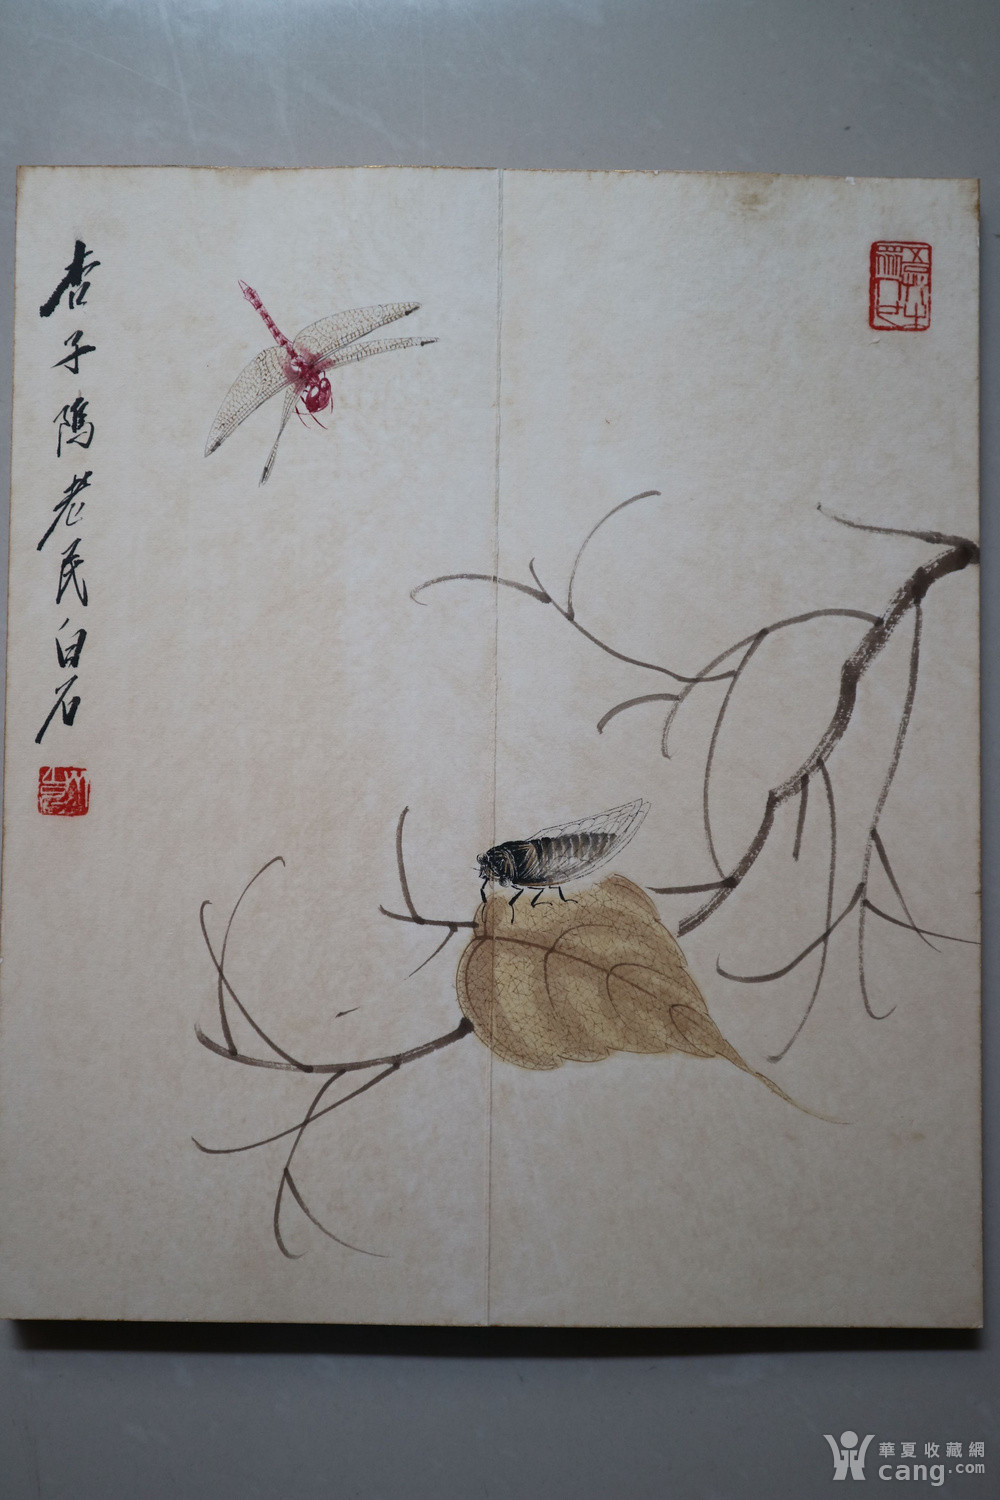 杏子隖老民白石
華夏收藏網
cang.com